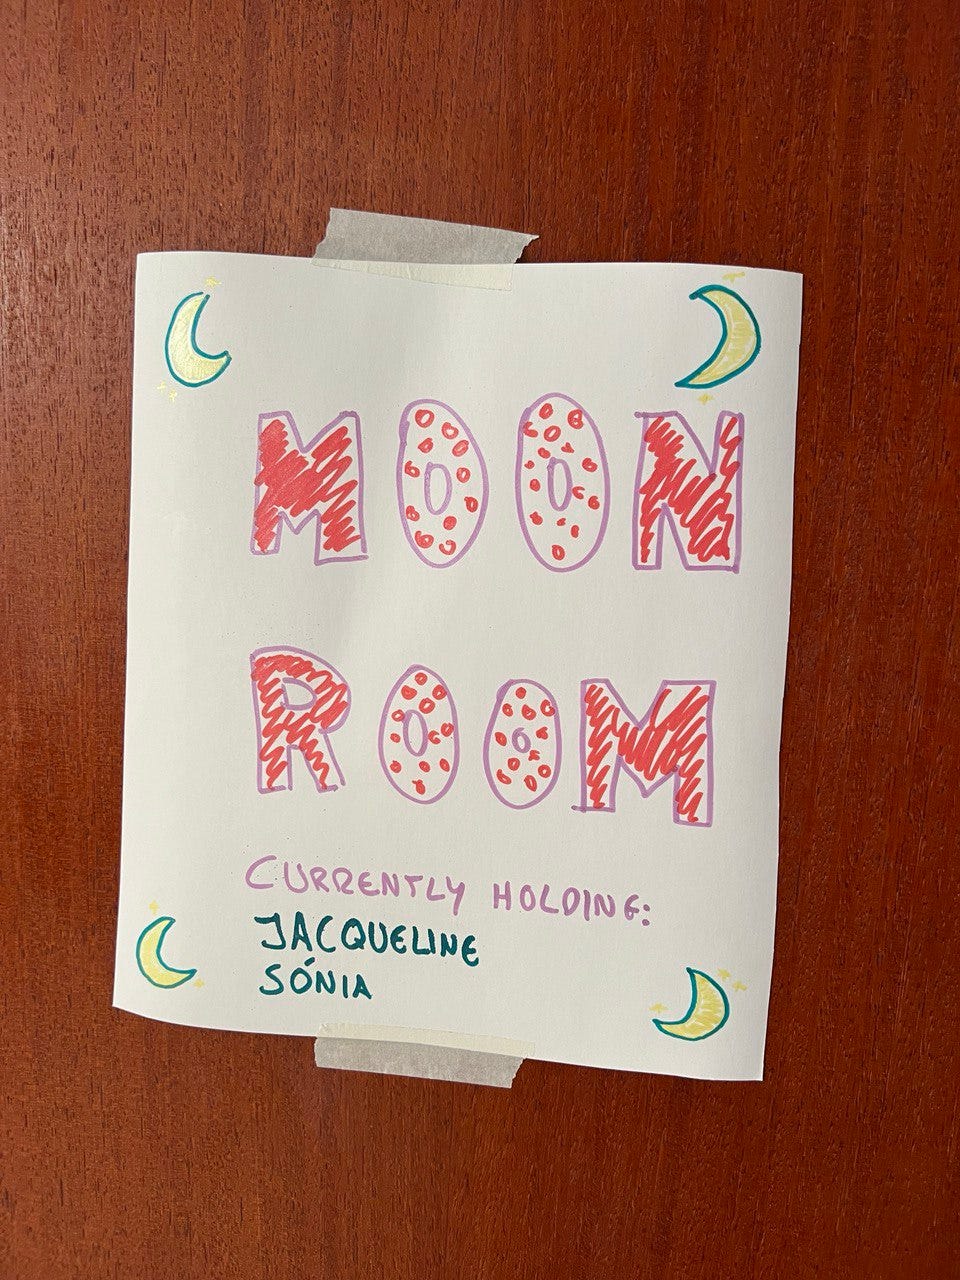 MOON
ROOM
CURRENTLY HOLDING:
JACQUELINE
SÓNIA